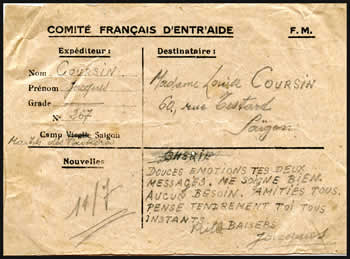 COMITÉ FRANÇAIS D'ENTR'AIDE F. M.
Expéditeur:
Nom COURSIN
Prénom Jacques
Grade
N° 367
Camp Virgile Saigon
Nouvelles
14/7
Destinataire:
Madame Louise COURSIN
60, rue
Saïgon
CHERIE
DOUCES EMOTIONS TES DEUX
MESSAGES. ME SOIGNE BIEN.
AUCUN BESOIN. AMITIÉS TOUS.
PENSE TENDREMENT TOI TOUS
INSTANTS.
BAISERS
Jacques